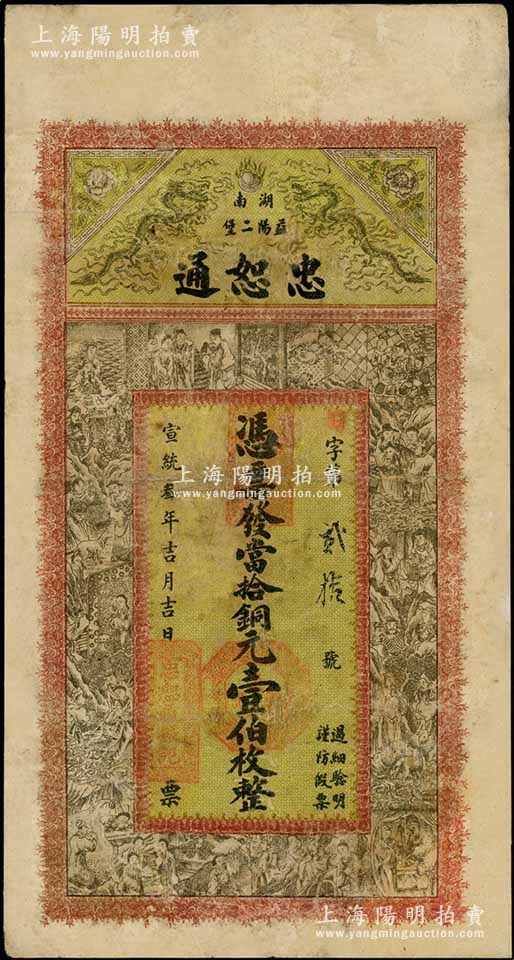 上海陽明拍賣
www.yangmingauction.com
湖南
益陽二堡
忠恕通
字第貳拾號
過細驗明
謹防假票
憑票發當拾銅元壹伯枚整
宣統叁年吉月吉日
票
上海陽明拍賣
www.yangmingauction.com
上海陽明拍賣
www.yangmingauction.com